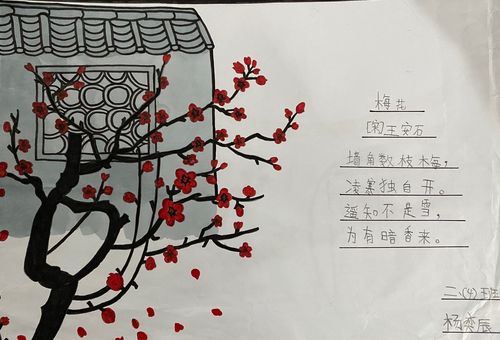 梅花
[宋]王安石
墙角数枝梅，
凌寒独自开。
遥知不是雪，
为有暗香来。
二、(4)班
杨奕辰